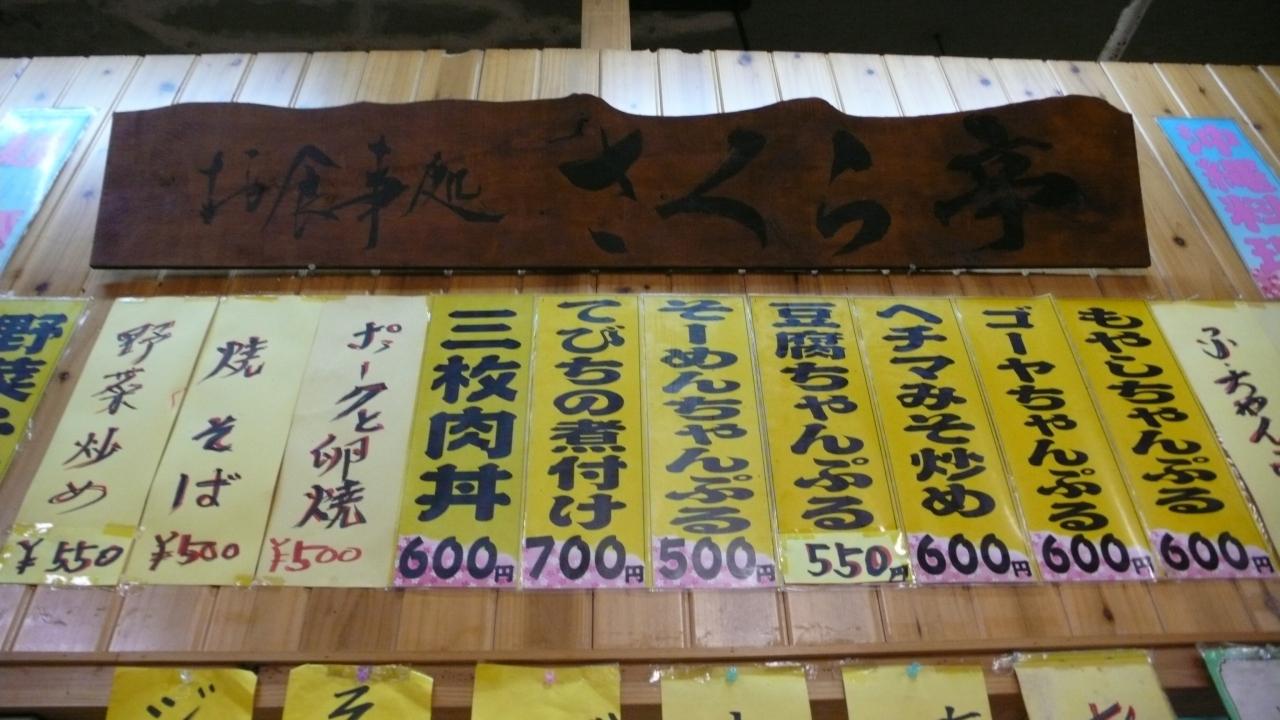 お食事処 さくら亭
沖縄料理
野菜
野菜炒め
¥550
焼そば
¥500
ポークと卵焼
¥500
三枚肉丼
600円
てびちの煮付け
700円
そーめんちゃんぷる
500円
豆腐ちゃんぷる
550円
ヘチマみそ炒め
600円
ゴーヤちゃんぷる
600円
もやしちゃんぷる
600円
ふちゃん